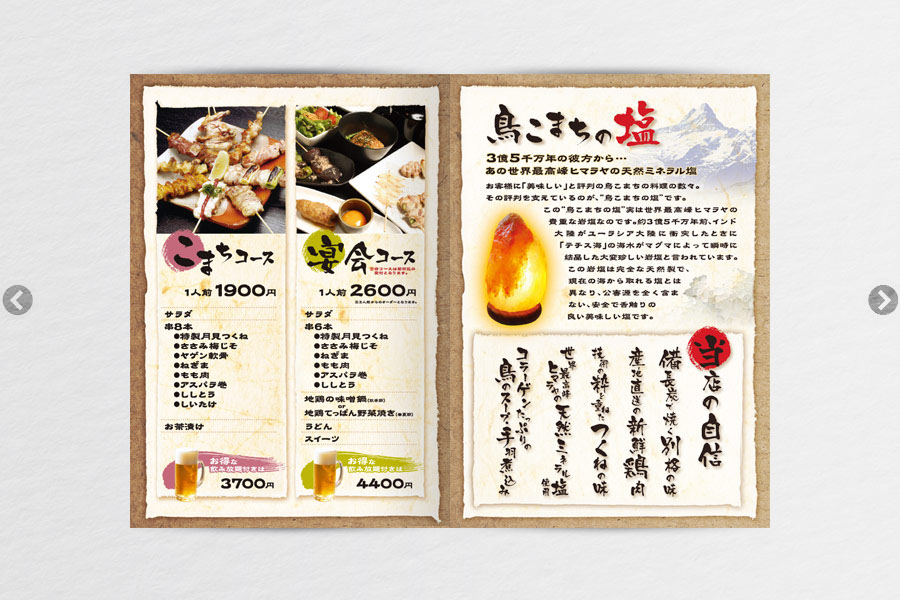 こまちコース
1人前1900円
サラダ
串8本
●特製月見つくね
●ささみ梅じそ
●ヤゲン軟骨
●ねぎま
●もも肉
●アスパラ巻
●ししとう
●しいたけ
お茶漬け
お得な
飲み放題付きは
3700円
宴会コース
1人前2600円
サラダ
串6本
●特製月見つくね
●ささみ梅じそ
●ねぎま
●もも肉
●アスパラ巻
●ししとう
地鶏の味噌鍋
or
地鶏てっぱん野菜焼き
うどん
スイーツ
お得な
飲み放題付きは
4400円
鳥こまちの塩
3億5千万年の彼方から…
あの世界最高峰ヒマラヤの天然ミネラル塩
お客様に「美味しい」と評判の鳥こまちの料理の数々。
その評判を支えているのが、“鳥こまちの塩”です。
この“鳥こまちの塩”実は世界最高峰ヒマラヤの
貴重な岩塩なのです。約3億5千万年前、インド
大陸がユーラシア大陸に衝突したときに
「テチス海」の海水がマグマによって瞬時に
結晶した大変珍しい岩塩と言われています。
この岩塩は完全な天然製で、
現在の海から取れる塩とは
異なり、公害源を全く含ま
ない、安全で舌触りの
良い美味しい塩です。
当店の自信
備長炭で焼く別格の味
産地直送の新鮮鶏肉
技術の粋を重ねたつくねの味
世界最高峰ヒマラヤの天然ミネラル塩使用
コラーゲンたっぷりの
鳥のスープ・手羽煮込み